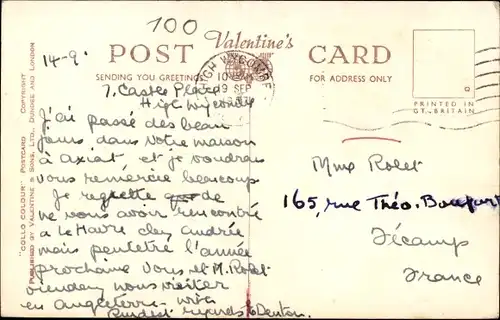 100
14-9
POST Valentine's CARD
SENDING YOU GREETINGS
FOR ADDRESS ONLY
HIGH WYCOMBE
SEP
PRINTED IN
GT. BRITAIN
"COLLO COLOUR" POSTCARD COPYRIGHT
PUBLISHED BY VALENTINE & SONS, LTD., DUNDEE AND LONDON
7, Castle Place
High Wycombe
J'ai passé des beau
jours dans votre maison
à et je voudrais
vous remercie beaucoup
Je regrette que de
ne vous avoir rencontré
a le Havre chez Andrée
mais peutetre l'année
prochaine Vous et M. Rolet
viendrez nous visiter
en Angleterre. with
Kindest regards Denton.
Mme Rolet
165, rue Théo. Boufart
Fécamp
France